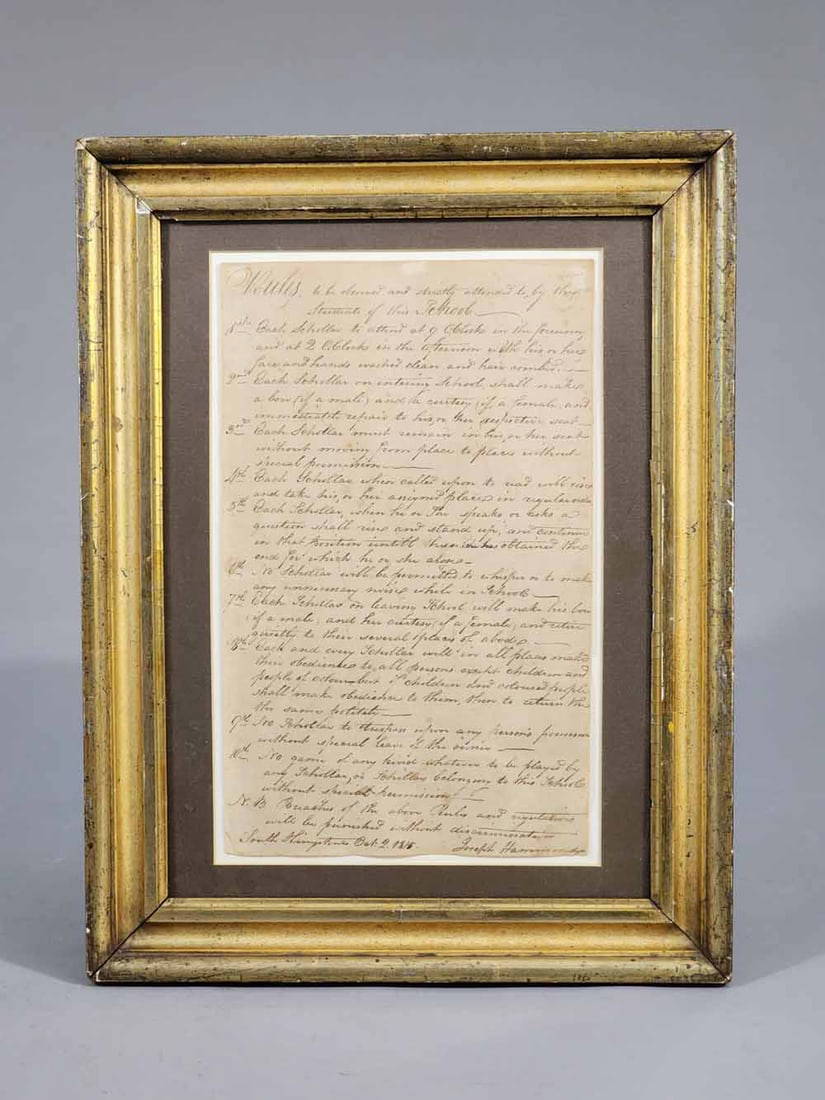 Rules, to be observed and strictly attended to, by the
Students of this School
1st Each Schollar to attend at 9 OClock in the forenoon
and at 2 OClock in the afternoon with his or her
face and hands washed clean and hair combed.
2nd Each Schollar on entering School, shall make
a bow (if a male) and a curtesy, if a female, and
immediately repair to his or her respective seat
3rd Each Schollar must remain in his, or her seat
without moving from place to place without
special permission
4th Each Schollar when called upon to read will rise
and take his, or her assigned place in regular order
5th Each Schollar, when he or she speaks or asks a
question shall rise and stand up, and continue
in that position untill has obtained the
end for which he or she arose
6th No Schollar will be permitted to whisper or to make
any unnecessary noise while in School
7th Each Schollar on leaving School will make his bow
if a male, and her curtesy, if a female, and retire
directly to their several places of abode
8th Each and every Schollar will in all places make
their obedience to, all persons except children and
people of colour but if children and coloured people
shall make obedience to them, then to return the
the same
9th No Schollar to trespass upon any persons possession
without special leave of the owner
10th No game of any kind whatever to be played by
any Schollar, or Schollars belonging to this School
without special permission
N.B Breaches of the above Rules and regulations
will be punished without discrimination
South Kingstown Oct. 2. Joseph Hammond